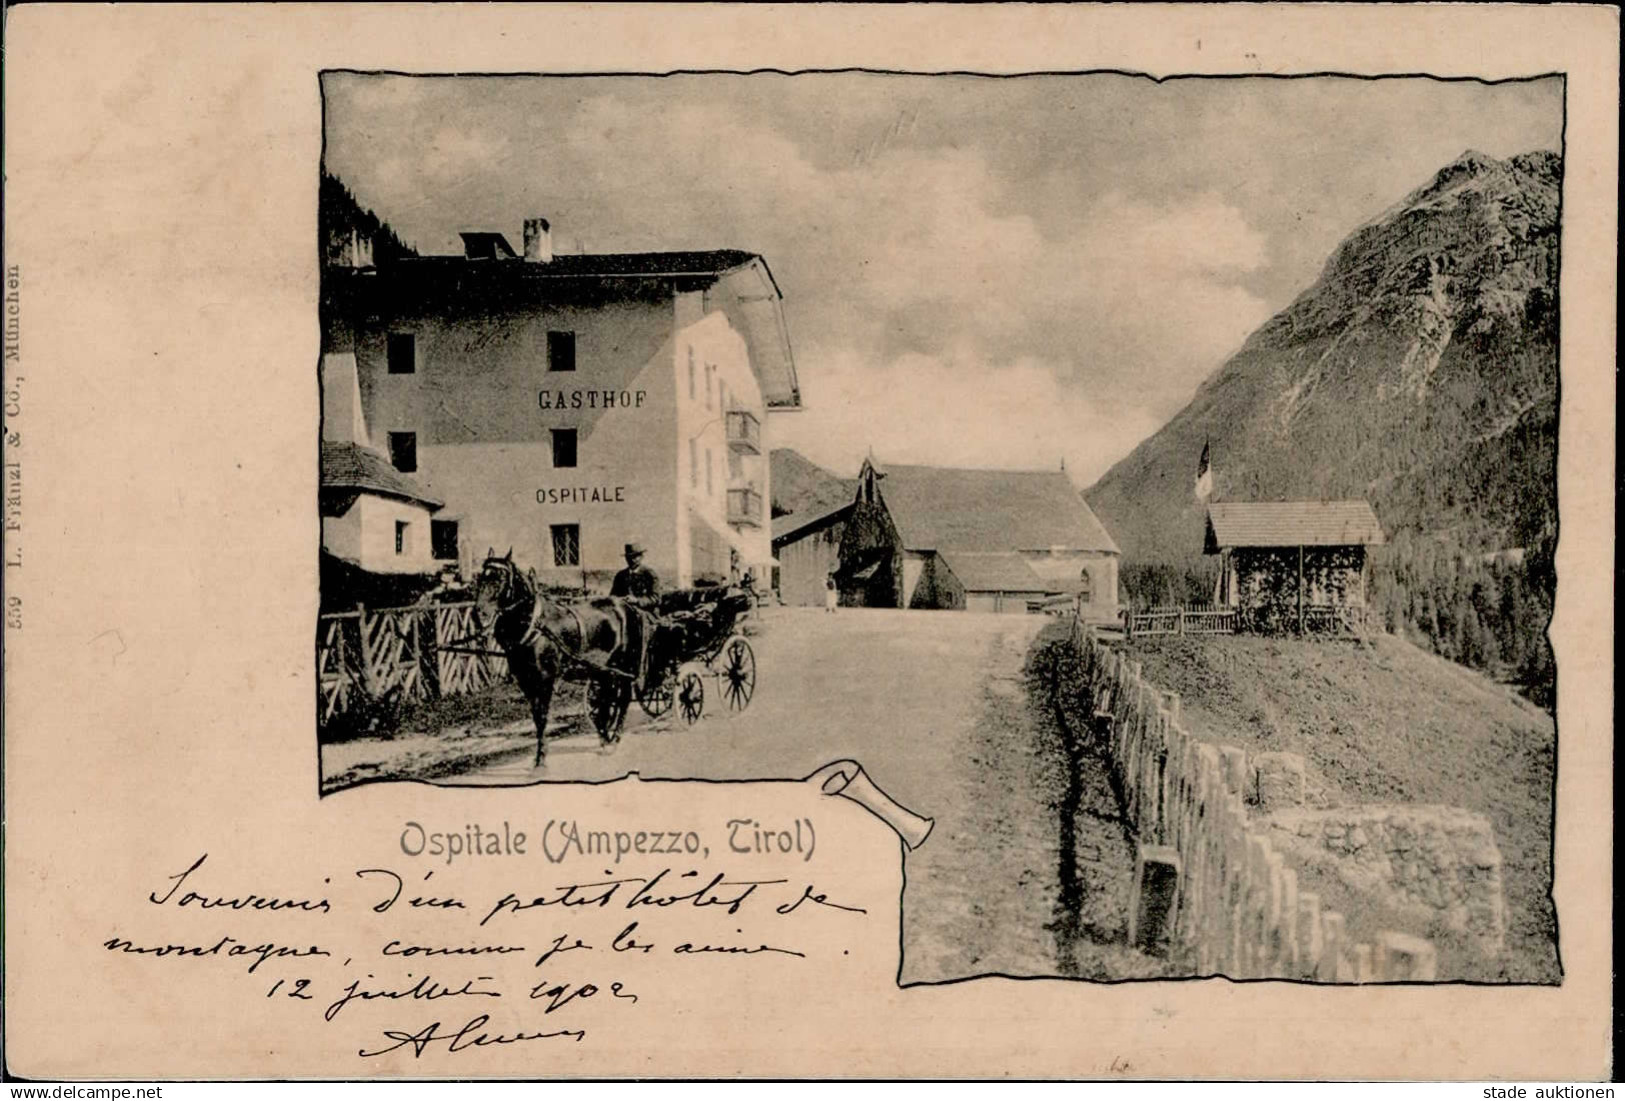 GASTHOF
OSPITALE
Ospitale (Ampezzo, Tirol)
Souvenir d'un petit hôtel de
montagne, comme je les aime.
12 juillet 1902
559 L. Fränzl & Co., München
delcampe.net
stade auktionen